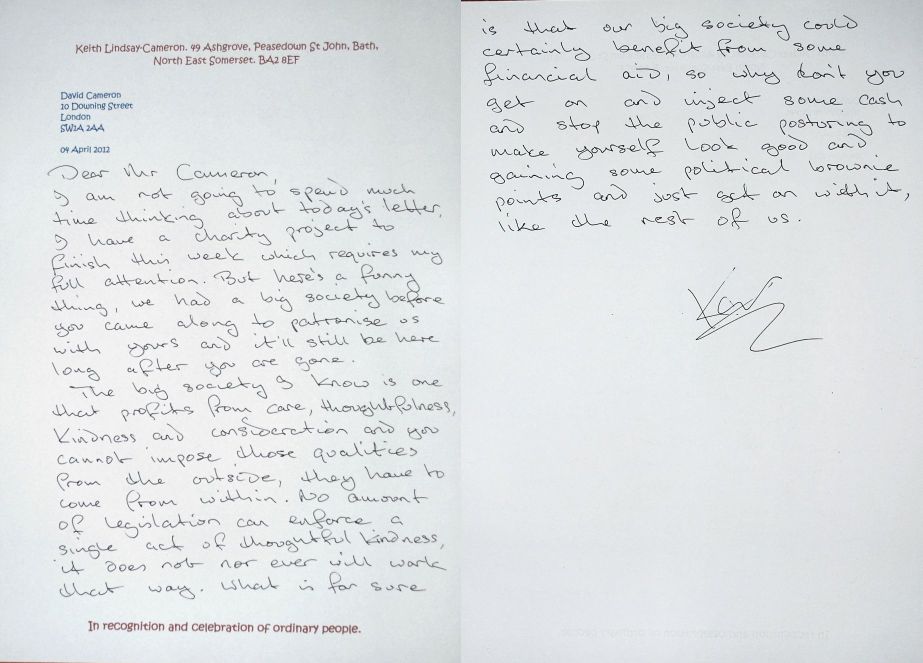 Keith Lindsay-Cameron. 49 Ashgrove, Peasedown St John, Bath,
North East Somerset. BA2 8EF
David Cameron
10 Downing Street
London
SW1A 2AA
04 April 2012
Dear Mr Cameron,
I am not going to spend much
time thinking about today's letter,
I have a charity project to
finish this week which requires my
full attention. But here's a funny
thing, we had a big society before
you came along to patronise us
with yours and it'll still be here
long after you are gone.
The big society I know is one
that profits from care, thoughtfulness,
kindness and consideration and you
cannot impose those qualities
from the outside, they have to
come from within. No amount
of legislation can enforce a
single act of thoughtful kindness,
it does not nor ever will work
that way. What is for sure
In recognition and celebration of ordinary people.
is that our big society could
certainly benefit from some
financial aid, so why don't you
get on and inject some cash
and stop the public posturing to
make yourself look good and
gaining some political brownie
points and just get on with it,
like the rest of us.